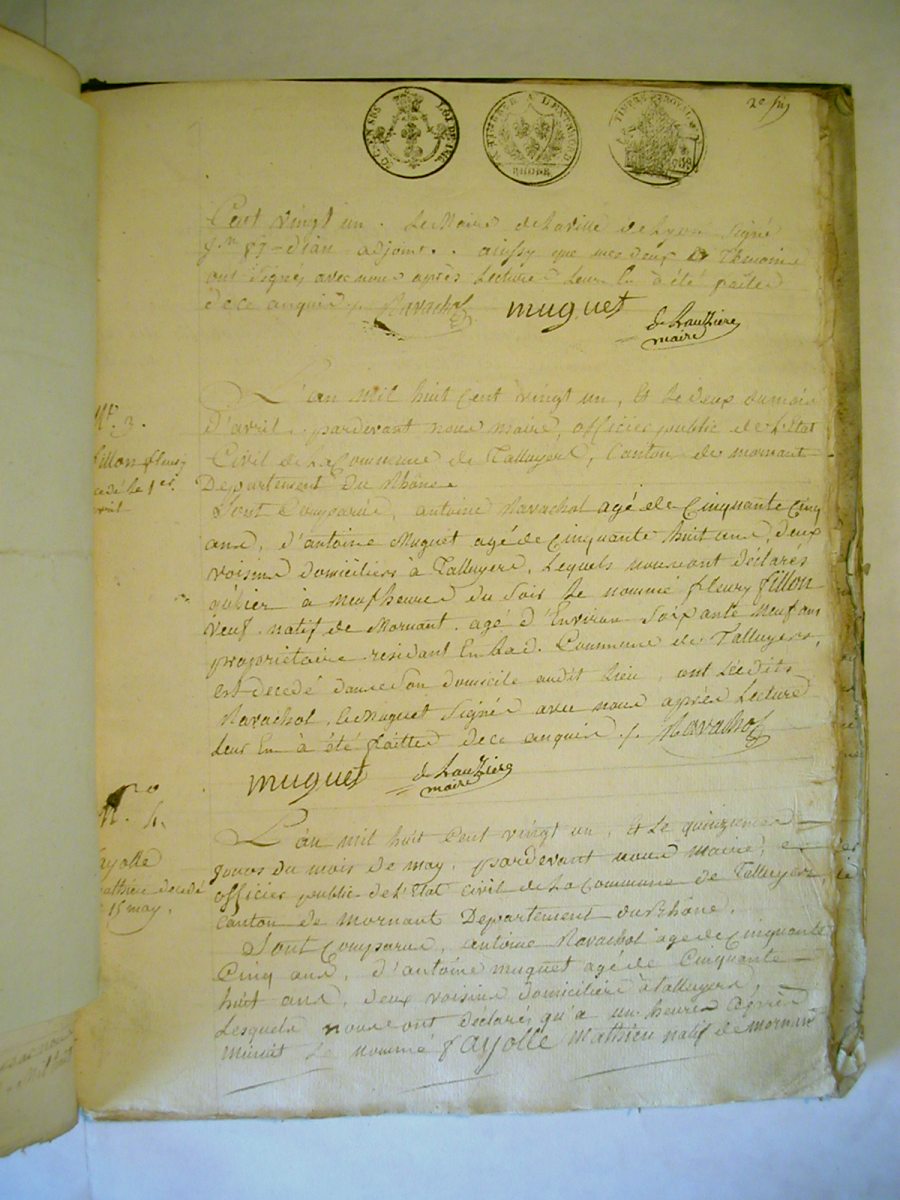 2e fn
TIMBRE A L'EXTRAORD
RHONE
TIMBRE ROYAL
Cent vingt un. Le Maire de la ville de Lyon signé
adjoint. aussy que mes deux Temoins
ont signés avec nous après Lecture leur En a été faitte
de ce enquis /. Ravachol muguet
de Lauzière
maire
No. 3.
fillon fleury
decedé le 1er
avril
L'an mil huit Cent vingt un, Et Le deux du mois
d'avril, pardevant nous maire, officier public de L'Etat
Civil de La Commune de Talluyers, Canton de mornant
Departement du Rhône.
Sont Comparus, antoine Ravachol agé de Cinquante Cinq
ans, d'antoine Muguet agé de Cinquante huit ans, deux
voisins domiciliers à Talluyers, Lesquels nous ont déclarés
qu'hier à neuf heures du soir Le nommé fleury fillon
veuf natif de Mornant agé d'Environ soixante neuf ans
propriétaire residant En lad. Commune de Talluyers,
est decedé dans son domicile audit Lieu, ont Lesdits
Ravachol, & Muguet Signés avec nous après Lecture
Leur En à été faitte de ce enquis /. Ravachol
muguet de Lauzière
maire
No. 4.
fayolle
mathieu decedé
15 may.
L'an mil huit Cent vingt un, Et Le quinzieme
jours du mois de may, pardevant nous Maire, et
officier public de L'Etat Civil de La Commune de Talluyers,
Canton de Mornant Departement du Rhône.
Sont Comparus, antoine Ravachol agé de Cinquante
Cinq ans, d'antoine muguet agé de Cinquante
huit ans, deux voisins domiciliers à talluyers,
Lesquels nous ont déclarés, qu'a un heures après
minuit Le nommé fayolle Mathieu natif de mornant